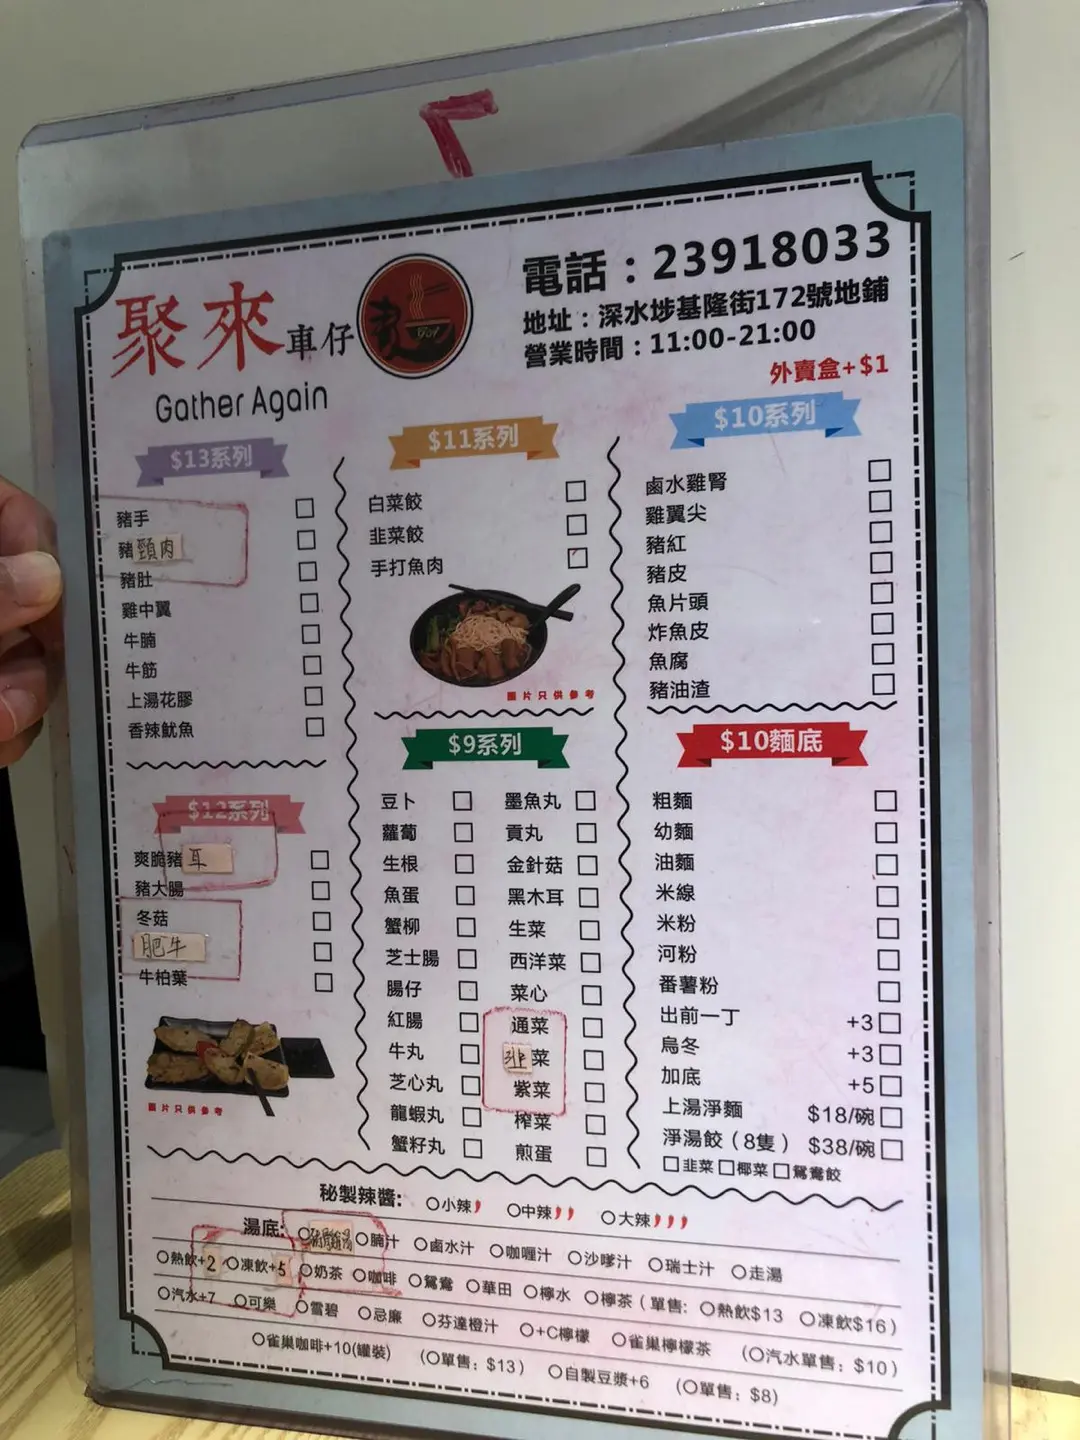 聚來車仔
Gather Again
電話：23918033
地址：深水埗基隆街172號地鋪
營業時間：11:00-21:00
外賣盒+$1
$13系列
豬手
豬頸肉
豬肚
雞中翼
牛腩
牛筋
上湯花膠
香辣魷魚
$12系列
爽脆豬耳
豬大腸
冬菇
肥牛
牛柏葉
圖片只供參考
$11系列
白菜餃
韭菜餃
手打魚肉
圖片只供參考
$9系列
豆卜
蘿蔔
生根
魚蛋
蟹柳
芝士腸
腸仔
紅腸
牛丸
芝心丸
龍蝦丸
蟹籽丸
墨魚丸
貢丸
金針菇
黑木耳
生菜
西洋菜
菜心
通菜
韭菜
紫菜
榨菜
煎蛋
$10系列
鹵水雞腎
雞翼尖
豬紅
豬皮
魚片頭
炸魚皮
魚腐
豬油渣
$10麵底
粗麵
幼麵
油麵
米線
米粉
河粉
番薯粉
出前一丁 +3
烏冬 +3
加底 +5
上湯淨麵 $18/碗
淨湯餃（8隻） $38/碗
韭菜 椰菜 鴛鴦餃
秘製辣醬: 小辣 中辣 大辣
湯底: 腩汁 鹵水汁 咖喱汁 沙嗲汁 瑞士汁 走湯
熱飲+2 凍飲+5 奶茶 咖啡 鴛鴦 華田 檸水 檸茶（單售: 熱飲$13 凍飲$16）
汽水+7 可樂 雪碧 忌廉 芬達橙汁 +C檸檬 雀巢檸檬茶 （汽水單售: $10）
雀巢咖啡+10(罐裝) （單售: $13） 自製豆漿+6 （單售: $8）